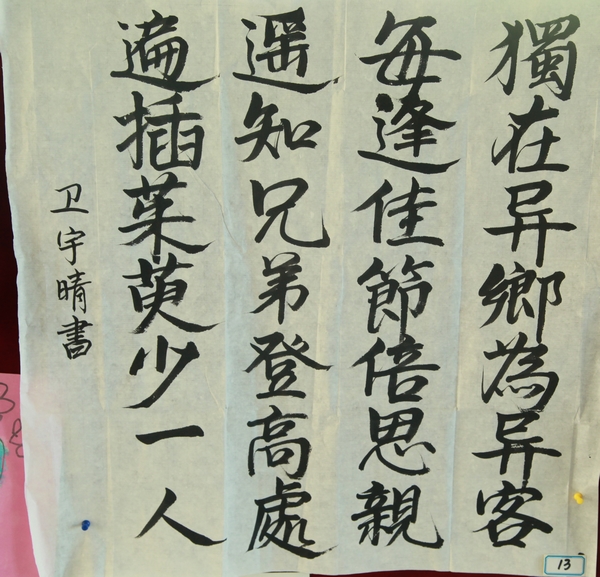 獨在异鄉為异客
每逢佳節倍思親
遥知兄弟登高處
遍插茱萸少一人
卫宇晴書
13